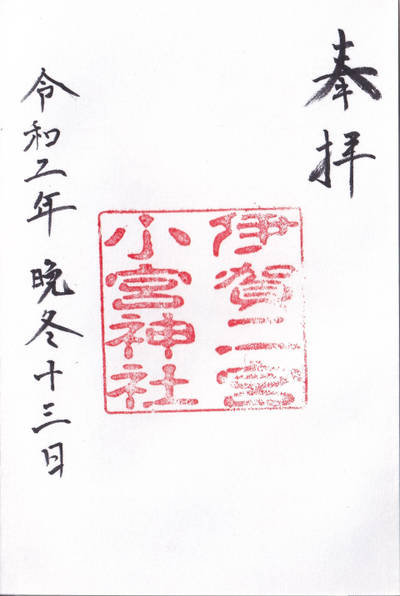 奉拝
伊賀二宮
小宮神社
令和二年 晩冬十三日